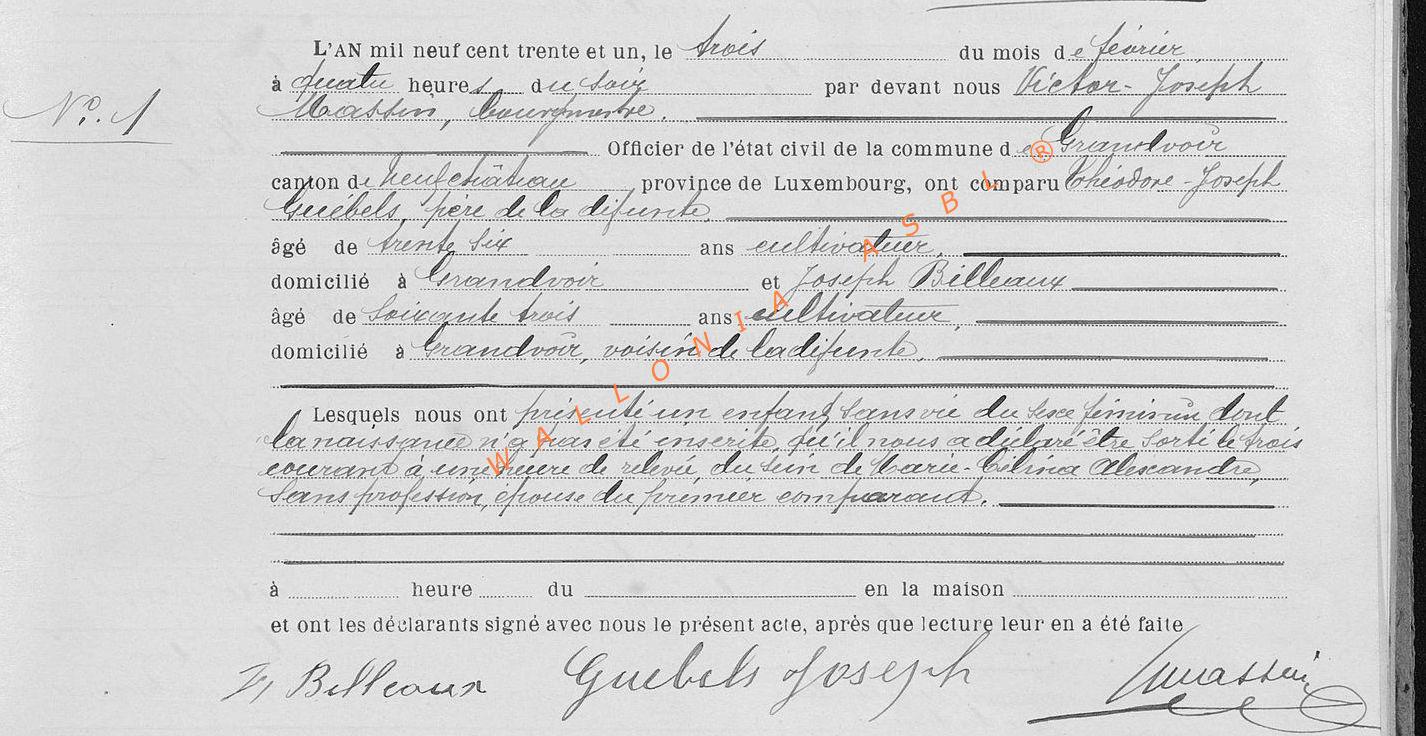 L'AN mil neuf cent trente et un, le trois du mois de février
à quatre heures du soir par devant nous Victor-Joseph
N° 1
Massin, bourgmestre.
Officier de l'état civil de la commune de Grandvoir
canton de Neufchâteau province de Luxembourg, ont comparu Théodore-Joseph
Guébels, père de la défunte
âgé de trente six ans cultivateur,
domicilié à Grandvoir et Joseph Billeaux
âgé de soixante trois ans cultivateur,
domicilié à Grandvoir, voisin de la défunte
Lesquels nous ont présenté un enfant sans vie du sexe féminin dont
la naissance n'a pas été inscrite, qu'il nous a déclaré être sorti le trois
courant à une heure de relevée du sein de Marie-Célina Alexandre,
sans profession, épouse du premier comparant.
à heure du en la maison
et ont les déclarants signé avec nous le présent acte, après que lecture leur en a été faite
Billeaux Guebels Joseph Massin
WALLONIA ASBL ®